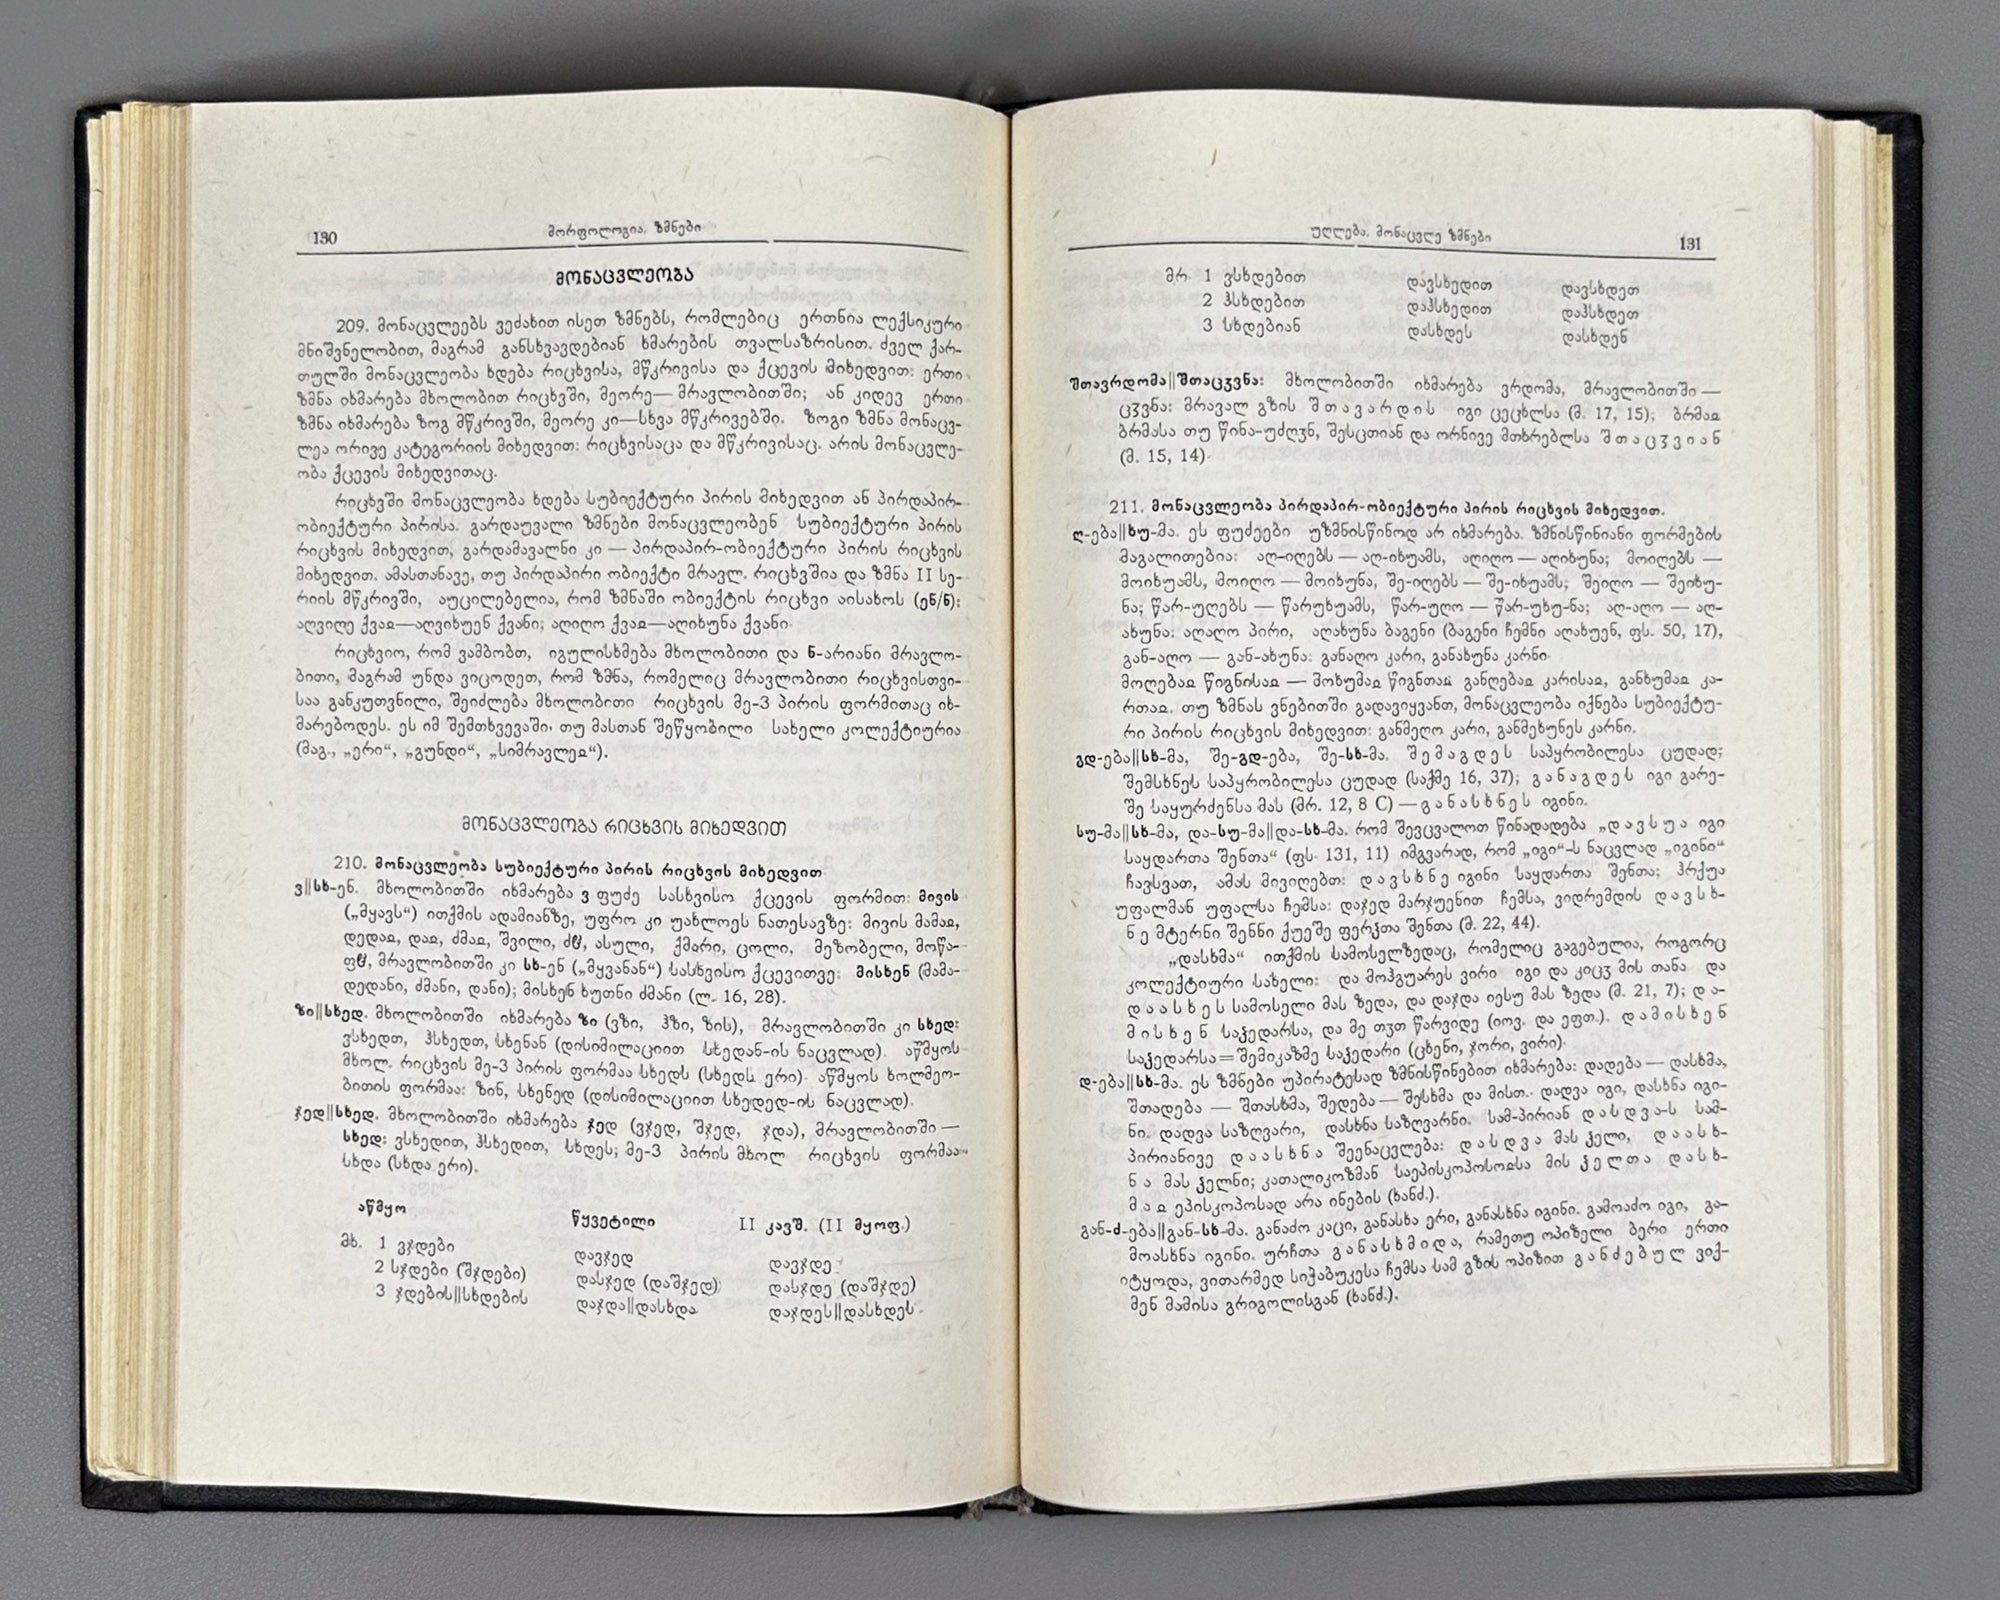 130
მორფოლოგია. ზმნები
მონაცვლეობა
209. მონაცვლეებს ვეძახით ისეთ ზმნებს, რომლებიც ერთნია ლექსიკური
მნიშვნელობით, მაგრამ განსხვავდებიან ხმარების თვალსაზრისით. ძველ ქარ-
თულში მონაცვლეობა ხდება რიცხვისა, მწკრივისა და ქცევის მიხედვით: ერთი
ზმნა იხმარება მხოლობით რიცხვში, მეორე— მრავლობითში; ან კიდევ ერთი
ზმნა იხმარება ზოგ მწკრივში, მეორე კი—სხვა მწკრივებში. ზოგი ზმნა მონაცვ-
ლეა ორივე კატეგორიის მიხედვით: რიცხვისაცა და მწკრივისაც. არის მონაცვლე-
ობა ქცევის მიხედვითაც.
რიცხვში მონაცვლეობა ხდება სუბიექტური პირის მიხედვით ან პირდაპირ-
ობიექტური პირისა. გარდაუვალი ზმნები მონაცვლეობენ სუბიექტური პირის
რიცხვის მიხედვით, გარდამავალნი კი — პირდაპირ-ობიექტური პირის რიცხვის
მიხედვით. ამასთანავე, თუ პირდაპირი ობიექტი მრავლ. რიცხვშია და ზმნა II სე-
რიის მწკრივში, აუცილებელია, რომ ზმნაში ობიექტის რიცხვი აისახოს (ენ/ნ):
აღვიღე ქვაჲ—აღვიხუენ ქვანი; აღიღო ქვაჲ—აღიხუნა ქვანი.
რიცხვიო, რომ ვამბობთ, იგულისხმება მხოლობითი და ნ-არიანი მრავლო-
ბითი, მაგრამ უნდა ვიცოდეთ, რომ ზმნა, რომელიც მრავლობითი რიცხვისთვი-
საა განკუთვნილი, შეიძლება მხოლობითი რიცხვის მე-3 პირის ფორმითაც იხ-
მარებოდეს. ეს იმ შემთხვევაში, თუ მასთან შეწყობილი სახელი კოლექტიურია
(მაგ., „ერი“, „გუნდი“, „სიმრავლეჲ“).
მონაცვლეობა რიცხვის მიხედვით
210. მონაცვლეობა სუბიექტური პირის რიცხვის მიხედვით
ვ||სხ-ენ. მხოლობითში იხმარება ვ ფუძე სასხვისო ქცევის ფორმით: მივის
(„მყავს“) ითქმის ადამიანზე, უფრო კი უახლოეს ნათესავზე: მივის მამაჲ,
დედაჲ, დაჲ, ძმაჲ, შვილი, ძჱ, ასული, ქმარი, ცოლი, მეზობელი, მოწა-
ფჱ, მრავლობითში კი სხ-ენ („მყვანან“) სასხვისო ქცევითვე: მისხენ (მამა-
დედანი, ძმანი, დანი); მისხენ ხუთნი ძმანი (ლ. 16, 28).
ზი||სხედ. მხოლობითში იხმარება ზი (ვზი, ჰზი, ზის), მრავლობითში კი სხედ:
ვსხედთ, ჰსხედთ, სხენან (დისიმილაციით სხედან-ის ნაცვლად). აწმყოს
მხოლ. რიცხვის მე-3 პირის ფორმაა სხედს (სხედს ერი). აწმყოს ხოლმეო-
ბითის ფორმაა: ზინ, სხენედ (დისიმილაციით სხედედ-ის ნაცვლად).
ჯედ||სხედ. მხოლობითში იხმარება ჯედ (ვჯედ, შჯედ, ჯდა), მრავლობითში —
სხედ: ვსხედით, ჰსხედით, სხდეს; მე-3 პირის მხოლ რიცხვის ფორმაა
სხდა (სხდა ერი).
აწმყო წყვეტილი II კავშ. (II მყოფ.)
მხ. 1 ვჯდები დავჯედ დავჯდე
2 სჯდები (შჯდები) დასჯედ (დაშჯედ) დასჯდე (დაშჯდე)
3 ჯდების||სხდების დაჯდა||დასხდა დაჯდეს||დასხდეს
უღლება. მონაცვლე ზმნები
131
მრ. 1 ვსხდებით დავსხედით დავსხდეთ
2 ჰსხდებით დაჰსხედით დაჰსხდეთ
3 სხდებიან დასხდეს დასხდენ
შთავრდომა||შთაცჳვნა: მხოლობითში იხმარება ვრდომა, მრავლობითში —
ცჳვნა: მრავალ გზის შთავარდის იგი ცეცხლსა (მ. 17, 15); ბრმაჲ
ბრმასა თუ წინა-უძღჳნ, შესცთიან და ორნივე მთხრებლსა შთაცჳვიან
(მ. 15, 14).
211. მონაცვლეობა პირდაპირ-ობიექტური პირის რიცხვის მიხედვით.
ღ-ება||ხუ-მა. ეს ფუძეები უზმნისწინოდ არ იხმარება. ზმნისწინიანი ფორმების
მაგალითებია: აღ-იღებს — აღ-იხუამს, აღიღო — აღიხუნა; მოიღებს —
მოიხუამს, მოიღო — მოიხუნა, შე-იღებს — შე-იხუამს; შეიღო — შეიხუ-
ნა; წარ-უღებს — წარუხუამს, წარ-უღო — წარ-უხუ-ნა; აღ-აღო — აღ-
ახუნა: აღაღო პირი, აღახუნა ბაგენი (ბაგენი ჩემნი აღახუენ, ფს. 50, 17),
გან-აღო — გან-ახუნა: განაღო კარი, განახუნა კარნი.
მოღებაჲ წიგნისაჲ — მოხუმაჲ წიგნთაჲ განღებაჲ კარისაჲ, განხუმაჲ კა-
რთაჲ. თუ ზმნას ვნებითში გადავიყვანთ, მონაცვლეობა იქნება სუბიექტუ-
რი პირის რიცხვის მიხედვით: განმეღო კარი, განმეხუნეს კარნი.
გდ-ება||სხ-მა, შე-გდ-ება, შე-სხ-მა. შემაგდეს საპყრობილესა ცუდად;
შემსხნეს საპყრობილესა ცუდად (საქმე 16, 37); განაგდეს იგი გარე-
შე საყურძენსა მას (მრ. 12, 8 C) — განასხნეს იგინი.
სუ-მა||სხ-მა, და-სუ-მა||და-სხ-მა. რომ შევცვალოთ წინადადება „დავსუა იგი
საყდართა შენთა“ (ფს. 131, 11) იმგვარად, რომ „იგი“-ს ნაცვლად „იგინი“
ჩავსვათ, ამას მივიღებთ: დავსხნე იგინი საყდართა შენთა; ჰრქუა
უფალმან უფალსა ჩემსა: დაჯედ მარჯუენით ჩემსა, ვიდრემდის დავსხ-
ნე მტერნი შენნი ქუეშე ფერჴთა შენთა (მ. 22, 44).
„დასხმა“ ითქმის სამოსელზედაც, რომელიც გაგებულია, როგორც
კოლექტიური სახელი: და მოჰგუარეს ვირი იგი და კიცჳ მის თანა და
დაასხეს სამოსელი მას ზედა, და დაჯდა იესუ მას ზედა (მ. 21, 7); და-
მისხენ საჴედარსა, და მე თჳთ წარვიდე (იოვ. და ეფთ.). დამისხენ
საჴედარსა=შემიკაზმე საჴედარი (ცხენი, ჯორი, ვირი).
დ-ება||სხ-მა. ეს ზმნები უპირატესად ზმნისწინებით იხმარება: დადება — დასხმა,
შთადება — შთასხმა, შედება — შესხმა და მისთ.. დადვა იგი, დასხნა იგი-
ნი. დადვა საზღვარი, დასხნა საზღვარნი. სამ-პირიან დასდვა-ს სამ-
პირიანივე დაასხნა შეენაცვლება: დასდვა მას ჴელი, დაასხ-
ნა მას ჴელნი; კათალიკოზმან საეპისკოპოსოჲსა მის ჴელთა დასხ-
მაჲ ეპისკოპოსად არა ინების (ხანძ.).
გან-ძ-ება||გან-სხ-მა. განაძო კაცი, განასხა ერი, განასხნა იგინი. გამოაძო იგი, გა-
მოასხნა იგინი. ურჩთა განასხმიდა, რამეთუ ოპიზელი ბერი ერთი
იტყოდა, ვითარმედ სიჭაბუკესა ჩემსა სამ გზის ოპიზით განძებულ ვიქ-
მენ მამისა გრიგოლისგან (ხანძ.).